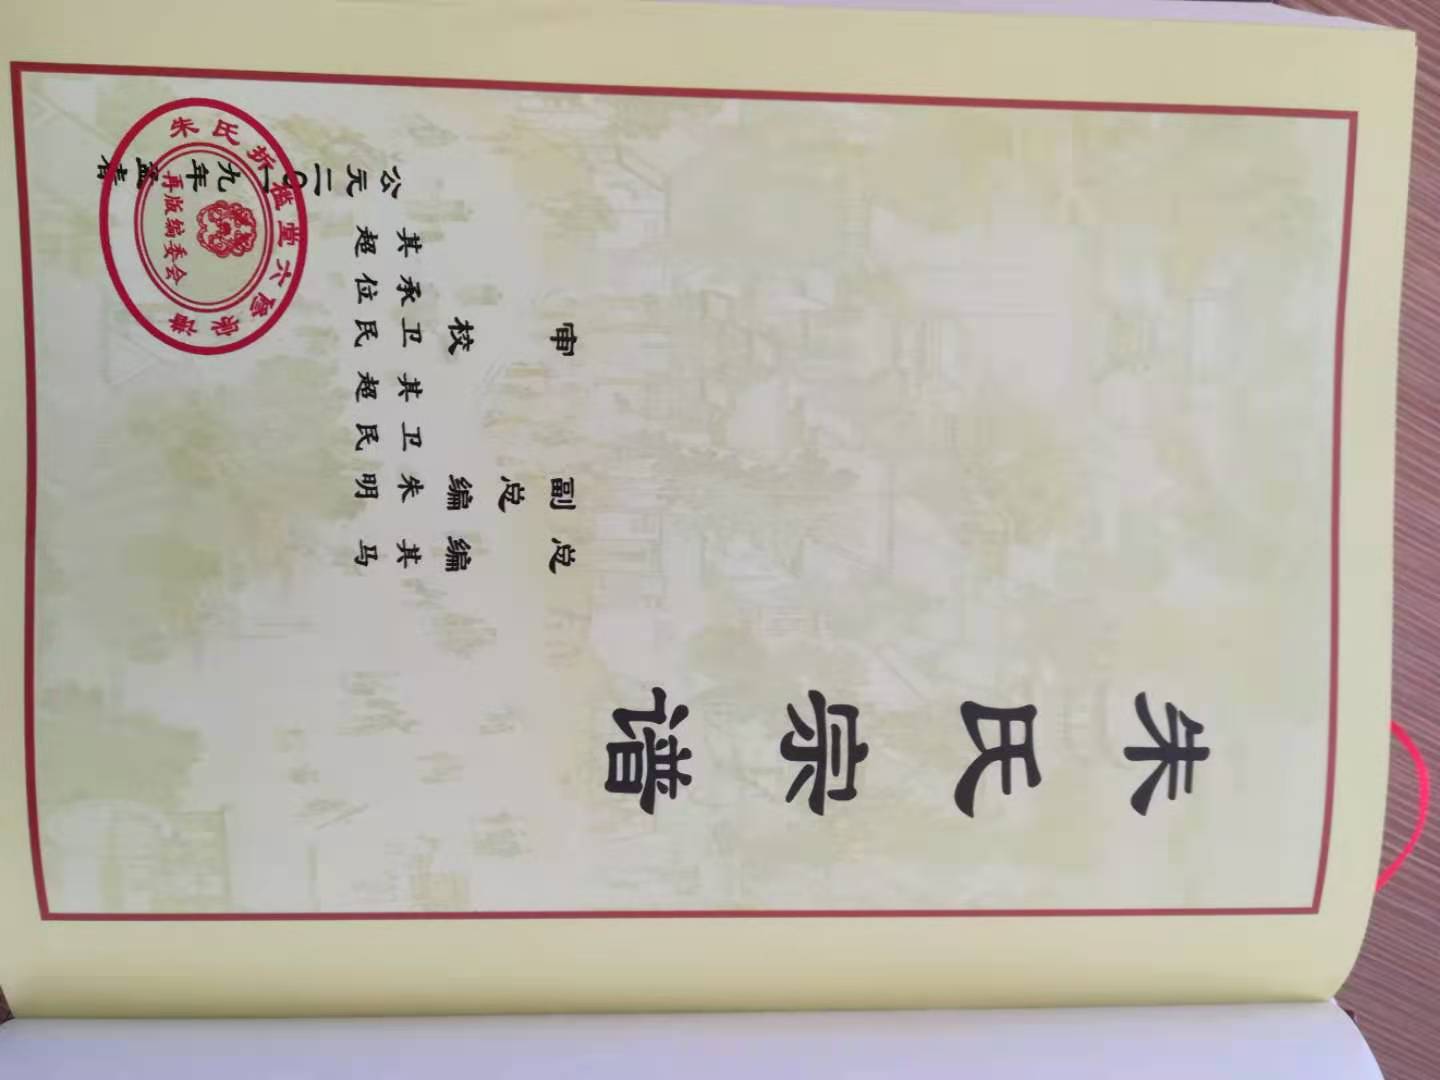 朱氏宗谱
总编 其马
副总编 朱明
卫民
其超
审校 卫民
承位
其超
公元二〇一九年孟春
朱氏折槛堂六 宗谱
再版编委会